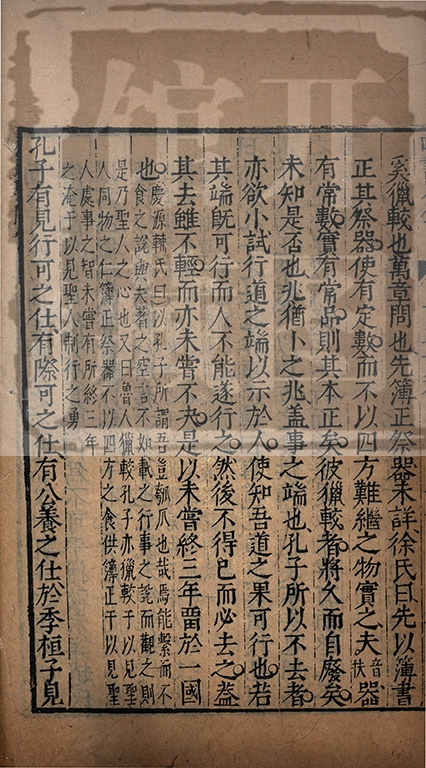 奚獵較也萬章問也先簿正祭器未詳徐氏曰先以簿書
正其祭器使有定數而不以四方難繼之物實之夫音扶器
有常數實有常品則其本正矣彼獵較者將久而自廢矣
未知是否也兆猶卜之兆盖事之端也孔子所以不去者
亦欲小試行道之端以示於人使知吾道之果可行也若
其端既可行而人不能遂行之然後不得已而必去之葢
其去雖不輕而亦未嘗不决是以未嘗終三年畱於一國
也慶源輔氏曰以孔子所謂吾豈匏瓜也哉焉能繫而不
食之說與夫著之空言不如載之行事之說而觀之則
是乃聖人之心也又曰魯人獵較孔子亦獵較于以見聖
人同物之仁簿正祭器不以四方之食供簿正于以見聖
人處事之智未嘗有所終三年
之淹于以見聖人制行之勇
孔子有見行可之仕有際可之仕有公養之仕於季桓子見